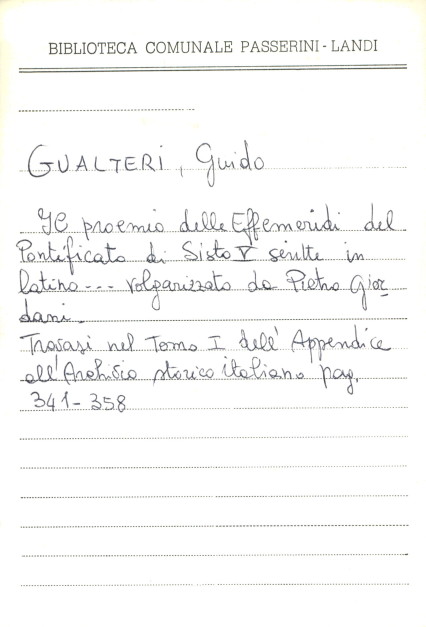 BIBLIOTECA COMUNALE PASSERINI - LANDI
GUALTERI, Guido
Il proemio delle Effemeridi del
Pontificato di Sisto V scritte in
latino --- volgarizzato da Pietro Gior
dani.
Trovasi nel Tomo I dell' Appendice
all'Archivio storico italiano pag.
341-358